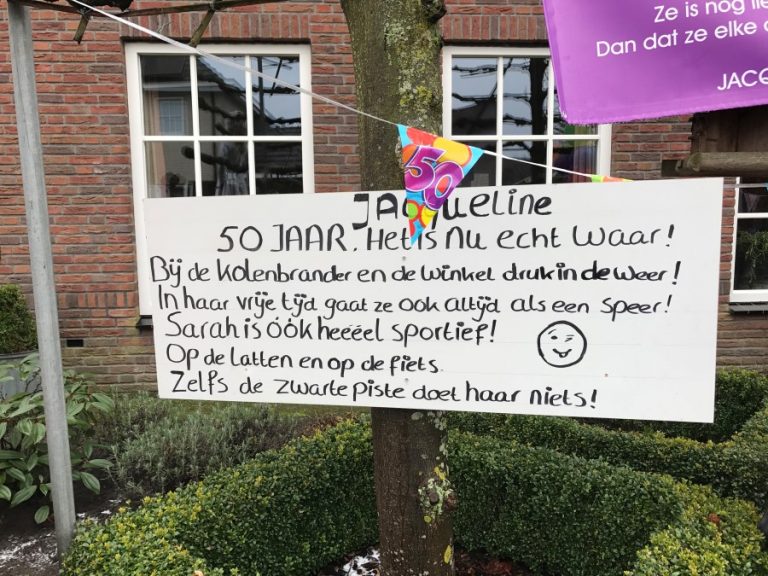 Ze is nog
Dan dat ze elke
JACQ
50
Jacqueline
50 JAAR. Het is nu echt waar!
Bij de Kolenbrander en de winkel druk in de weer!
In haar vrije tijd gaat ze ook altijd als een speer!
Sarah is óók heéél sportief!
Op de latten en op de fiets.
Zelfs de zwarte piste doet haar niets!